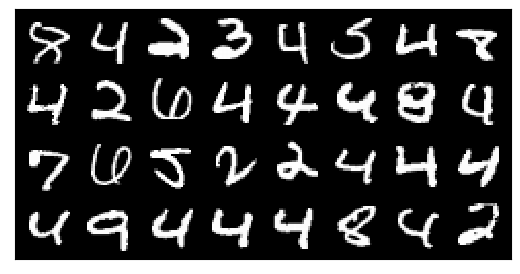 8 4 2 3 4 5 4 8
4 2 6 4 4 4 8 4
7 6 5 2 2 4 4 4
4 9 4 4 4 8 4 2